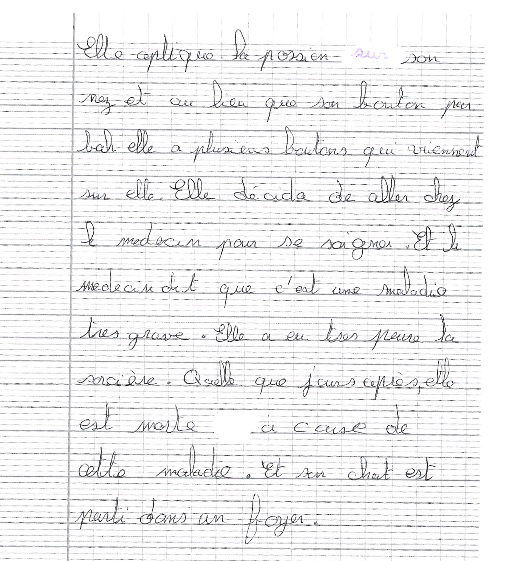 Elle aplique la possion sur son
nez et au lieu que son bouton par
bah elle a plusieus boutons qui viennent
sur elle. Elle décida de aller chez
le medecin pour se soigner. Et le
medecin dit que c'est une maladie
tres grave. Elle a eu tres peure la
sorcière. Quelle que jours après, elle
est morte à cause de
cette maladie. Et son chat est
parti dans un foyer.